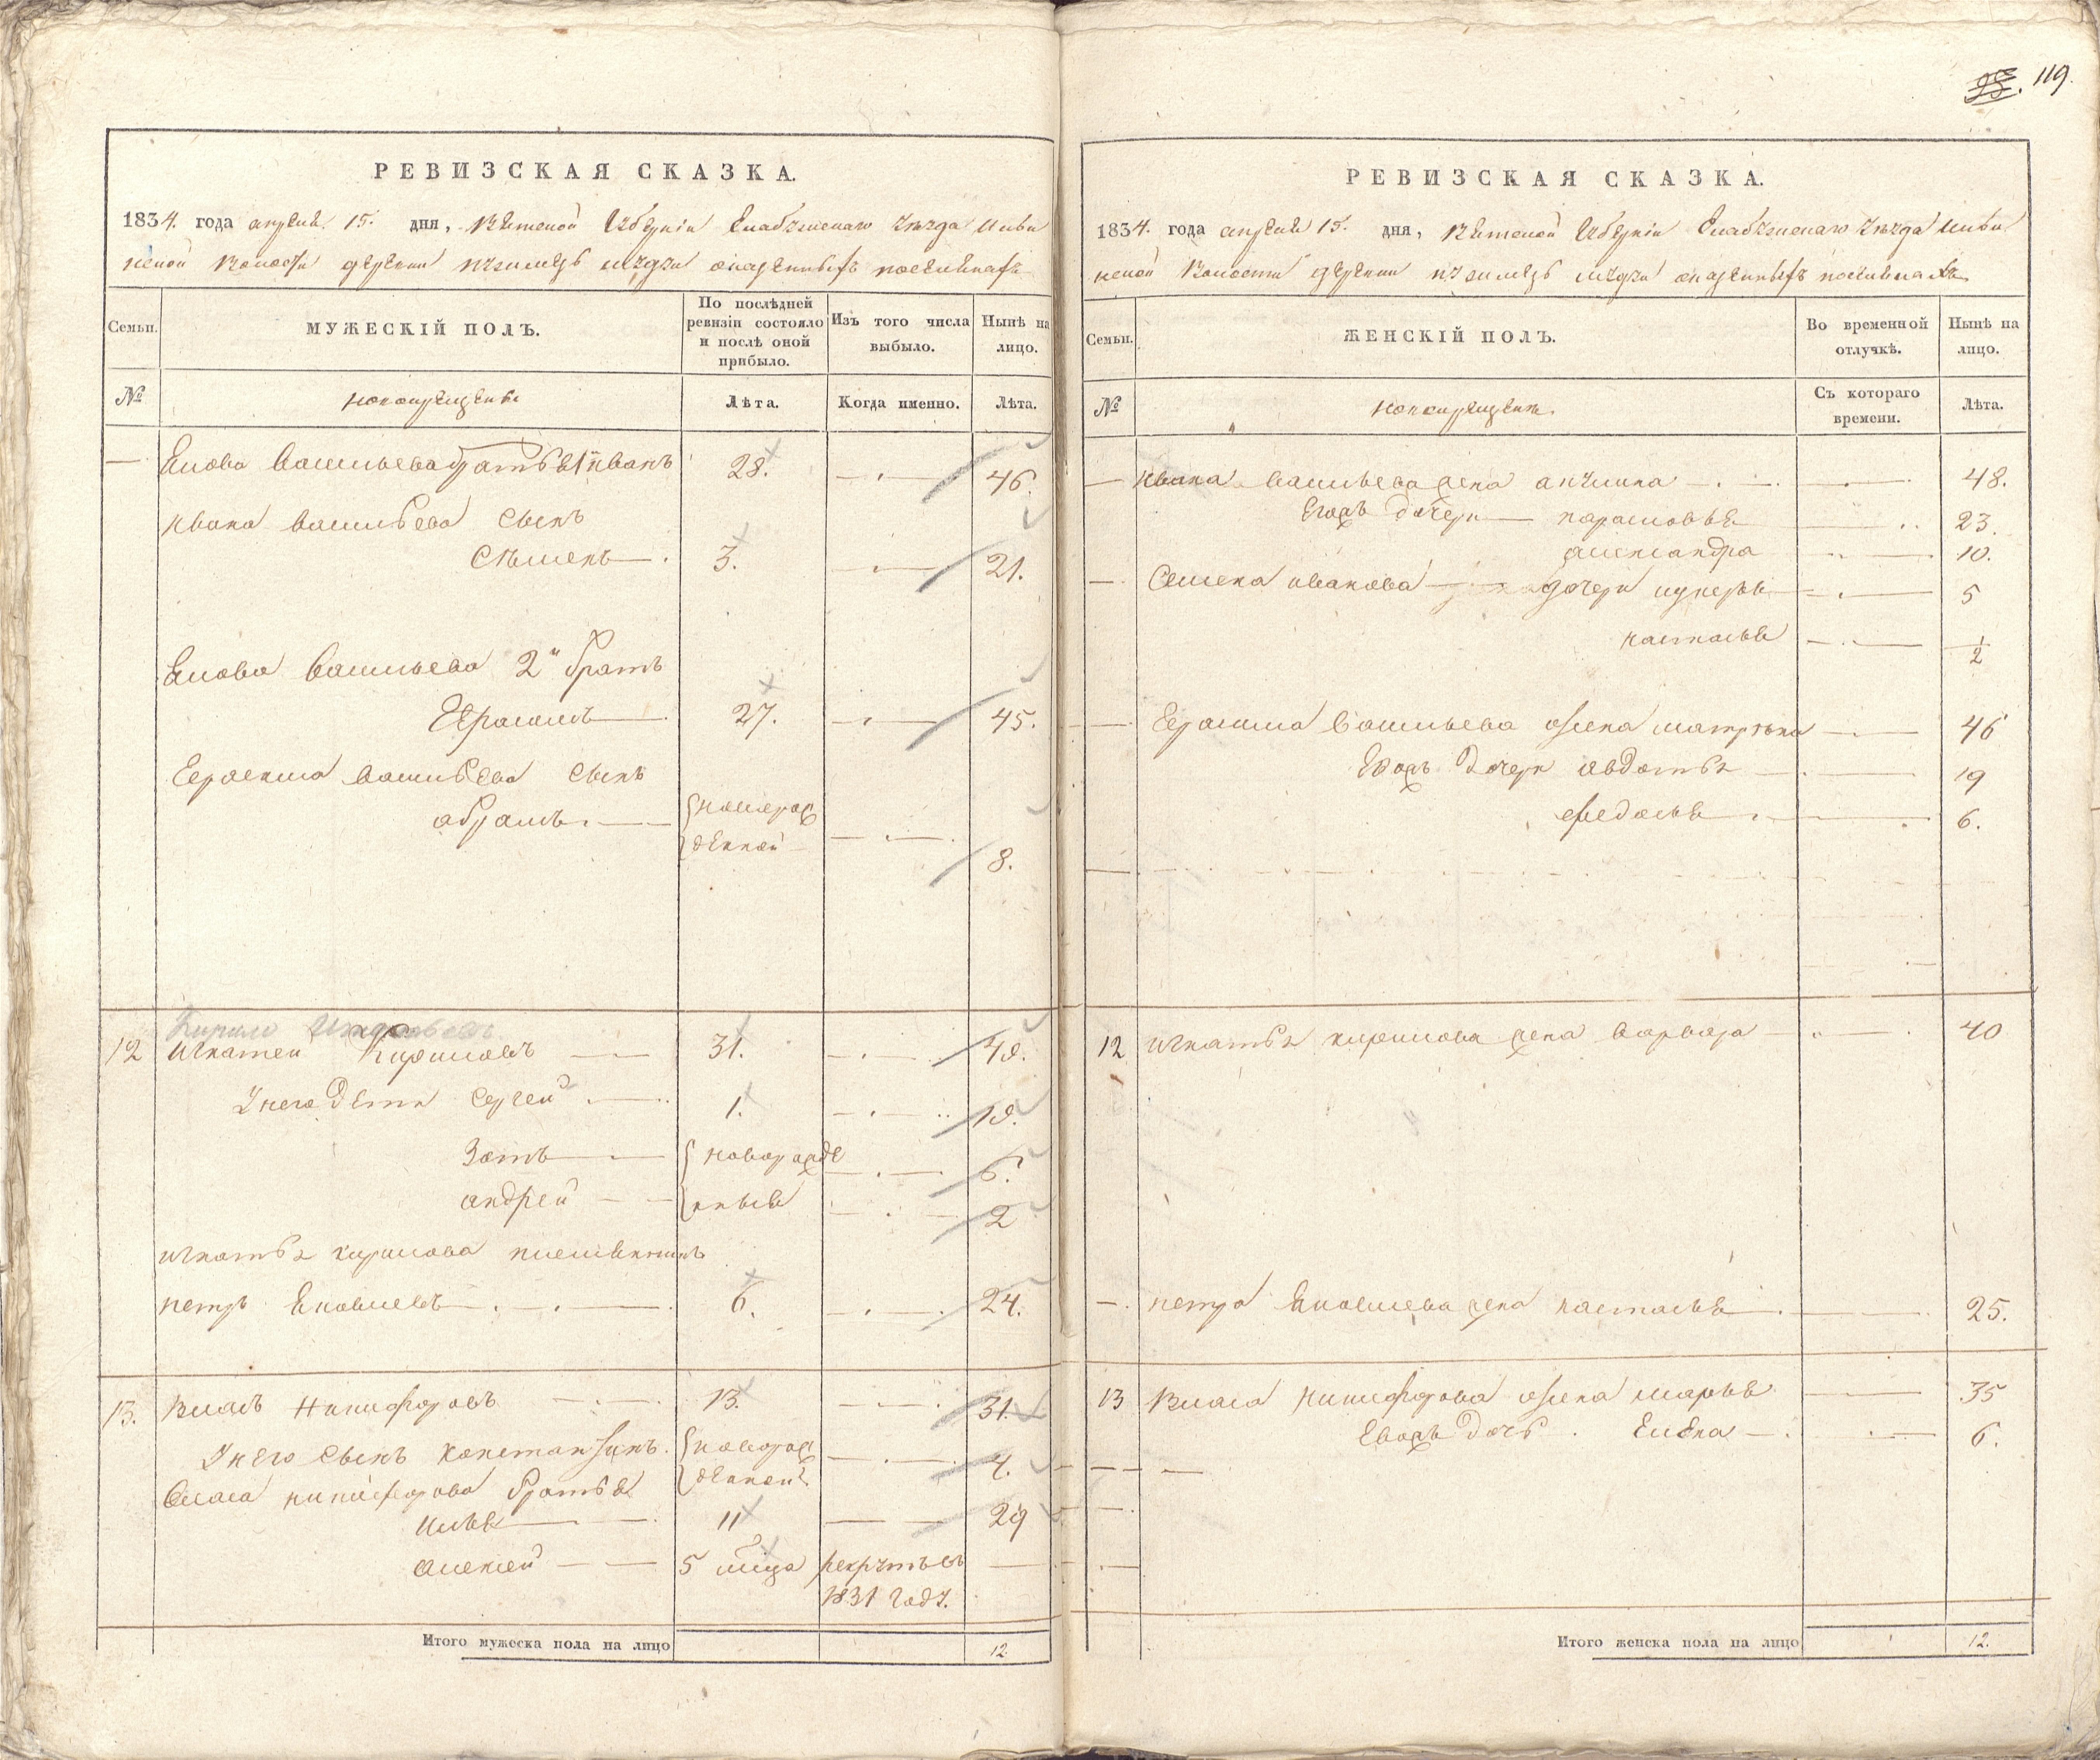 119.
РЕВИЗСКАЯ СКАЗКА.
1834. года апреля 15. дня, Вятской Губерніи Елабужскаго уезда
ской волости деревни
Семьи.
МУЖЕСКІЙ ПОЛЪ.
По послѣдней ревизіи состояло и послѣ оной прибыло.
Изъ того числа выбыло.
Нынѣ на лицо.
№
новокрещены
Лѣта.
Когда именно.
Лѣта.
— васильева братья 1й иванъ 28. 46.
ивана васильева сынъ
семенъ 3. 21.
васильева 2й братъ
Герасимъ 27. 45.
Герасима васильева сынъ
абрамъ новорож
денной 8.
12 игнатей кириловъ 31. 49.
у него дети сергей 1. 19.
Зотъ новорожде 6.
андрей нные 2
игнатья кирилова племянникъ
петръ Яковлевъ 6. 24.
13. Власъ никифоровъ 13. 31.
у него сынъ константинъ новорож
денной 4.
власа никифорова братья
илья 11 29
алексей 5 мца рекрутъ въ
1831 году.
Итого мужеска пола на лицо 12
РЕВИЗСКАЯ СКАЗКА.
1834. года апреля 15. дня, Вятской Губерніи Елабужскаго уезда
ской волости деревни
Семьи.
ЖЕНСКІЙ ПОЛЪ.
Во временной отлучкѣ.
Нынѣ на лицо.
№
новокрещены
Съ котораго времени.
Лѣта.
— ивана васильева жена акулина 48.
Его дочери парасковья 23.
александра 10.
— Семена иванова дочери 5
настасья 1/2
— Герасима васильева жена матрона 46
дочери авдотья 19
федосья 6.
12 игнатья кирилова жена варвара 40
— петра Яковлева жена настасья 25.
13 Власа никифорова жена марья 35
дочь Елена 6.
Итого женска пола на лицо 12.